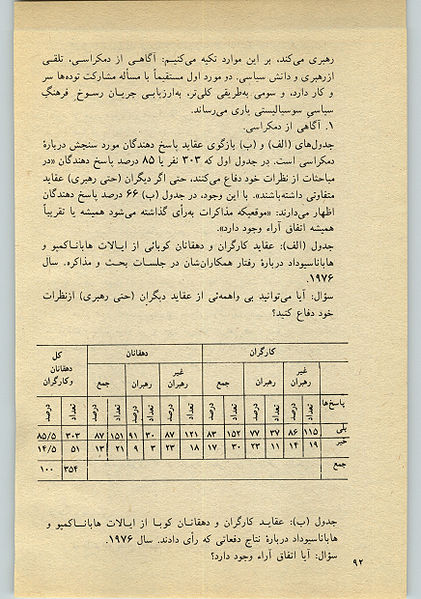 رهبری می‌کند، بر این موارد تکیه می‌کنیم: آگاهی از دمکراسی، تلقی
ازرهبری و دانش سیاسی. دو مورد اول مستقیماً با مسأله مشارکت توده‌ها سر
و کار دارد، و سومی به‌طریقی کلی‌تر، به‌ارزیابی جریان رسوخ فرهنگ
سیاسی سوسیالیستی یاری می‌رساند.
۱. آگاهی از دمکراسی.
جدول‌های (الف) و (ب) بازگوی عقاید پاسخ دهندگان مورد سنجش دربارهٔ
دمکراسی است. در جدول اول که ۳۰۳ نفر یا ۸۵ درصد پاسخ دهندگان «در
مباحثات از نظرات خود دفاع می‌کنند، حتی اگر دیگران (حتی رهبری) عقاید
متفاوتی داشته‌باشند». با این وجود، در جدول (ب) ۶۶ درصد پاسخ دهندگان
اظهار می‌دارند: «موقعیکه مذاکرات به‌رأی گذاشته می‌شود همیشه یا تقریباً
همیشه اتفاق آراء وجود دارد».
جدول (الف): عقاید کارگران و دهقانان کوبائی از ایالات هاباناکمپو و
هاباناسیوداد دربارهٔ رفتار همکاران‌شان در جلسات بحث و مذاکره. سال
۱۹۷۶.
سؤال: آیا می‌توانید بی واهمه‌ئی از عقاید دیگران (حتی رهبری) ازنظرات
خود دفاع کنید؟
کارگران دهقانان کل دهقانان وکارگران
پاسخ‌ها غیر رهبران رهبران جمع غیر رهبران رهبران جمع
تعداد درصد تعداد درصد تعداد درصد تعداد درصد تعداد درصد تعداد درصد تعداد درصد
بلی ۱۱۵ ۸۶ ۳۷ ۷۷ ۱۵۲ ۸۳ ۱۲۱ ۸۷ ۳۰ ۹۱ ۱۵۱ ۸۷ ۳۰۳ ۸۵/۵
خیر ۱۹ ۱۴ ۱۱ ۲۳ ۳۰ ۱۷ ۱۸ ۲۳ ۳ ۹ ۲۱ ۱۳ ۵۱ ۱۴/۵
جمع ۳۵۴ ۱۰۰
جدول (ب): عقاید کارگران و دهقانان کوبا از ایالات هاباناکمپو و
هاباناسیوداد دربارهٔ نتاج دفعاتی که رأی دادند. سال ۱۹۷۶.
سؤال: آیا اتفاق آراء وجود دارد؟
۹۲